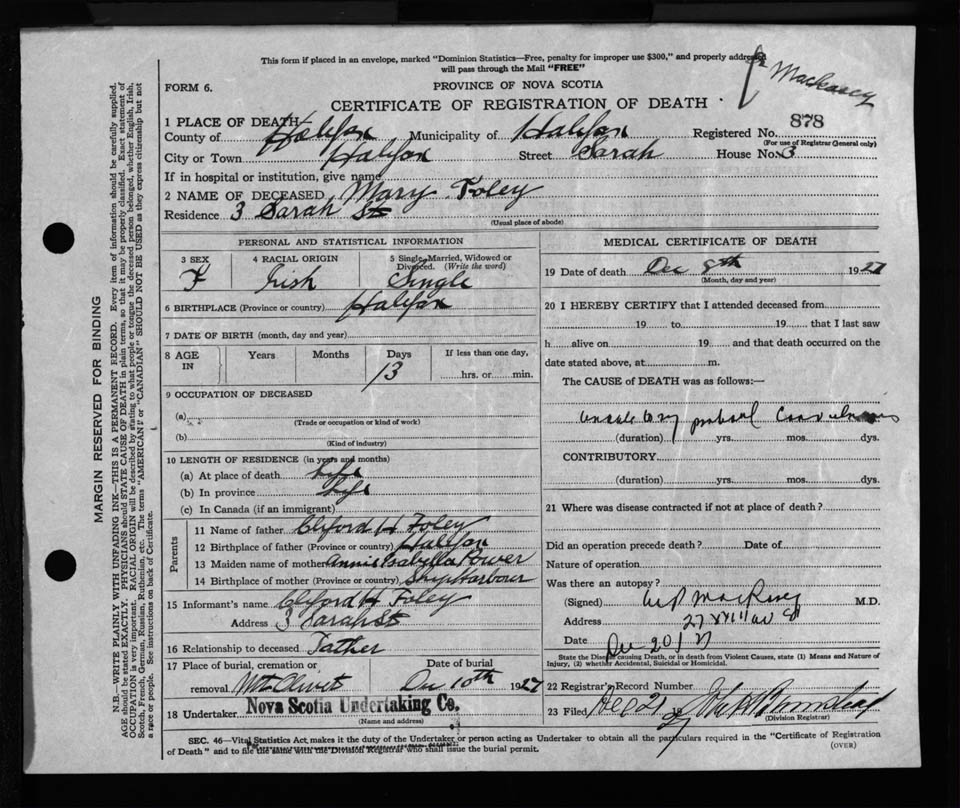 This form if placed in an envelope, marked "Dominion Statistics—Free, penalty for improper use $300," and properly addressed
will pass through the Mail "FREE"
Dr Mackasey
FORM 6.
PROVINCE OF NOVA SCOTIA
CERTIFICATE OF REGISTRATION OF DEATH
1 PLACE OF DEATH
County of Halifax Municipality of Halifax Registered No. 878
(For use of Registrar General only)
City or Town Halifax Street Sarah House No. 3
If in hospital or institution, give name
2 NAME OF DECEASED Mary Foley
Residence 3 Sarah St
(Usual place of abode)
PERSONAL AND STATISTICAL INFORMATION
3 SEX F
4 RACIAL ORIGIN Irish
5 Single, Married, Widowed or Divorced. (Write the word) Single
6 BIRTHPLACE (Province or country) Halifax
7 DATE OF BIRTH (month, day and year)
8 AGE IN Years Months Days 13 If less than one day, hrs. or min.
9 OCCUPATION OF DECEASED
(a)
(Trade or occupation or kind of work)
(b)
(Kind of industry)
10 LENGTH OF RESIDENCE (in years and months)
(a) At place of death Life
(b) In province Life
(c) In Canada (if an immigrant)
Parents
11 Name of father Cliford H Foley
12 Birthplace of father (Province or country) Halifax
13 Maiden name of mother Annie Isabella Power
14 Birthplace of mother (Province or country) Ship Harbour
15 Informant's name Cliford H Foley
Address 3 Sarah St
16 Relationship to deceased Father
17 Place of burial, cremation or Date of burial
removal Mt Olivet Dec 10th 1927
18 Undertaker Nova Scotia Undertaking Co.
(Name and address)
MEDICAL CERTIFICATE OF DEATH
19 Date of death Dec 8th 1927
(Month, day and year)
20 I HEREBY CERTIFY that I attended deceased from
19 to 19 that I last saw
h alive on 19 and that death occurred on the
date stated above, at m.
The CAUSE of DEATH was as follows:—
(duration) yrs. mos. dys.
CONTRIBUTORY
(duration) yrs. mos. dys.
21 Where was disease contracted if not at place of death?
Did an operation precede death? Date of
Nature of operation
Was there an autopsy?
(Signed) M.D.
Address
Date Dec 20/27
State the Disease causing Death, or in death from Violent Causes, state (1) Means and Nature of
Injury, (2) whether Accidental, Suicidal or Homicidal.
22 Registrar's Record Number
23 Filed Dec 21 1927
(Division Registrar)
SEC. 46—Vital Statistics Act, makes it the duty of the Undertaker or person acting as Undertaker to obtain all the particulars required in the "Certificate of Registration
of Death" and to file the same with the Division Registrar who shall issue the burial permit.
(OVER)
MARGIN RESERVED FOR BINDING
N.B.—WRITE PLAINLY WITH UNFADING INK—THIS IS A PERMANENT RECORD. Every item of information should be carefully supplied.
AGE should be stated EXACTLY. PHYSICIANS should STATE CAUSE OF DEATH in plain terms, so that it may be properly classified. Exact statement of
OCCUPATION is very important. RACIAL ORIGIN will be described by stating to what people or tongue the deceased person belonged, whether English, Irish,
Scotch, French, German, Russian, Ruthenian, etc. The terms "AMERICAN" or "CANADIAN" SHOULD NOT BE USED as they express citizenship but not
a race or people. See instructions on back of Certificate.